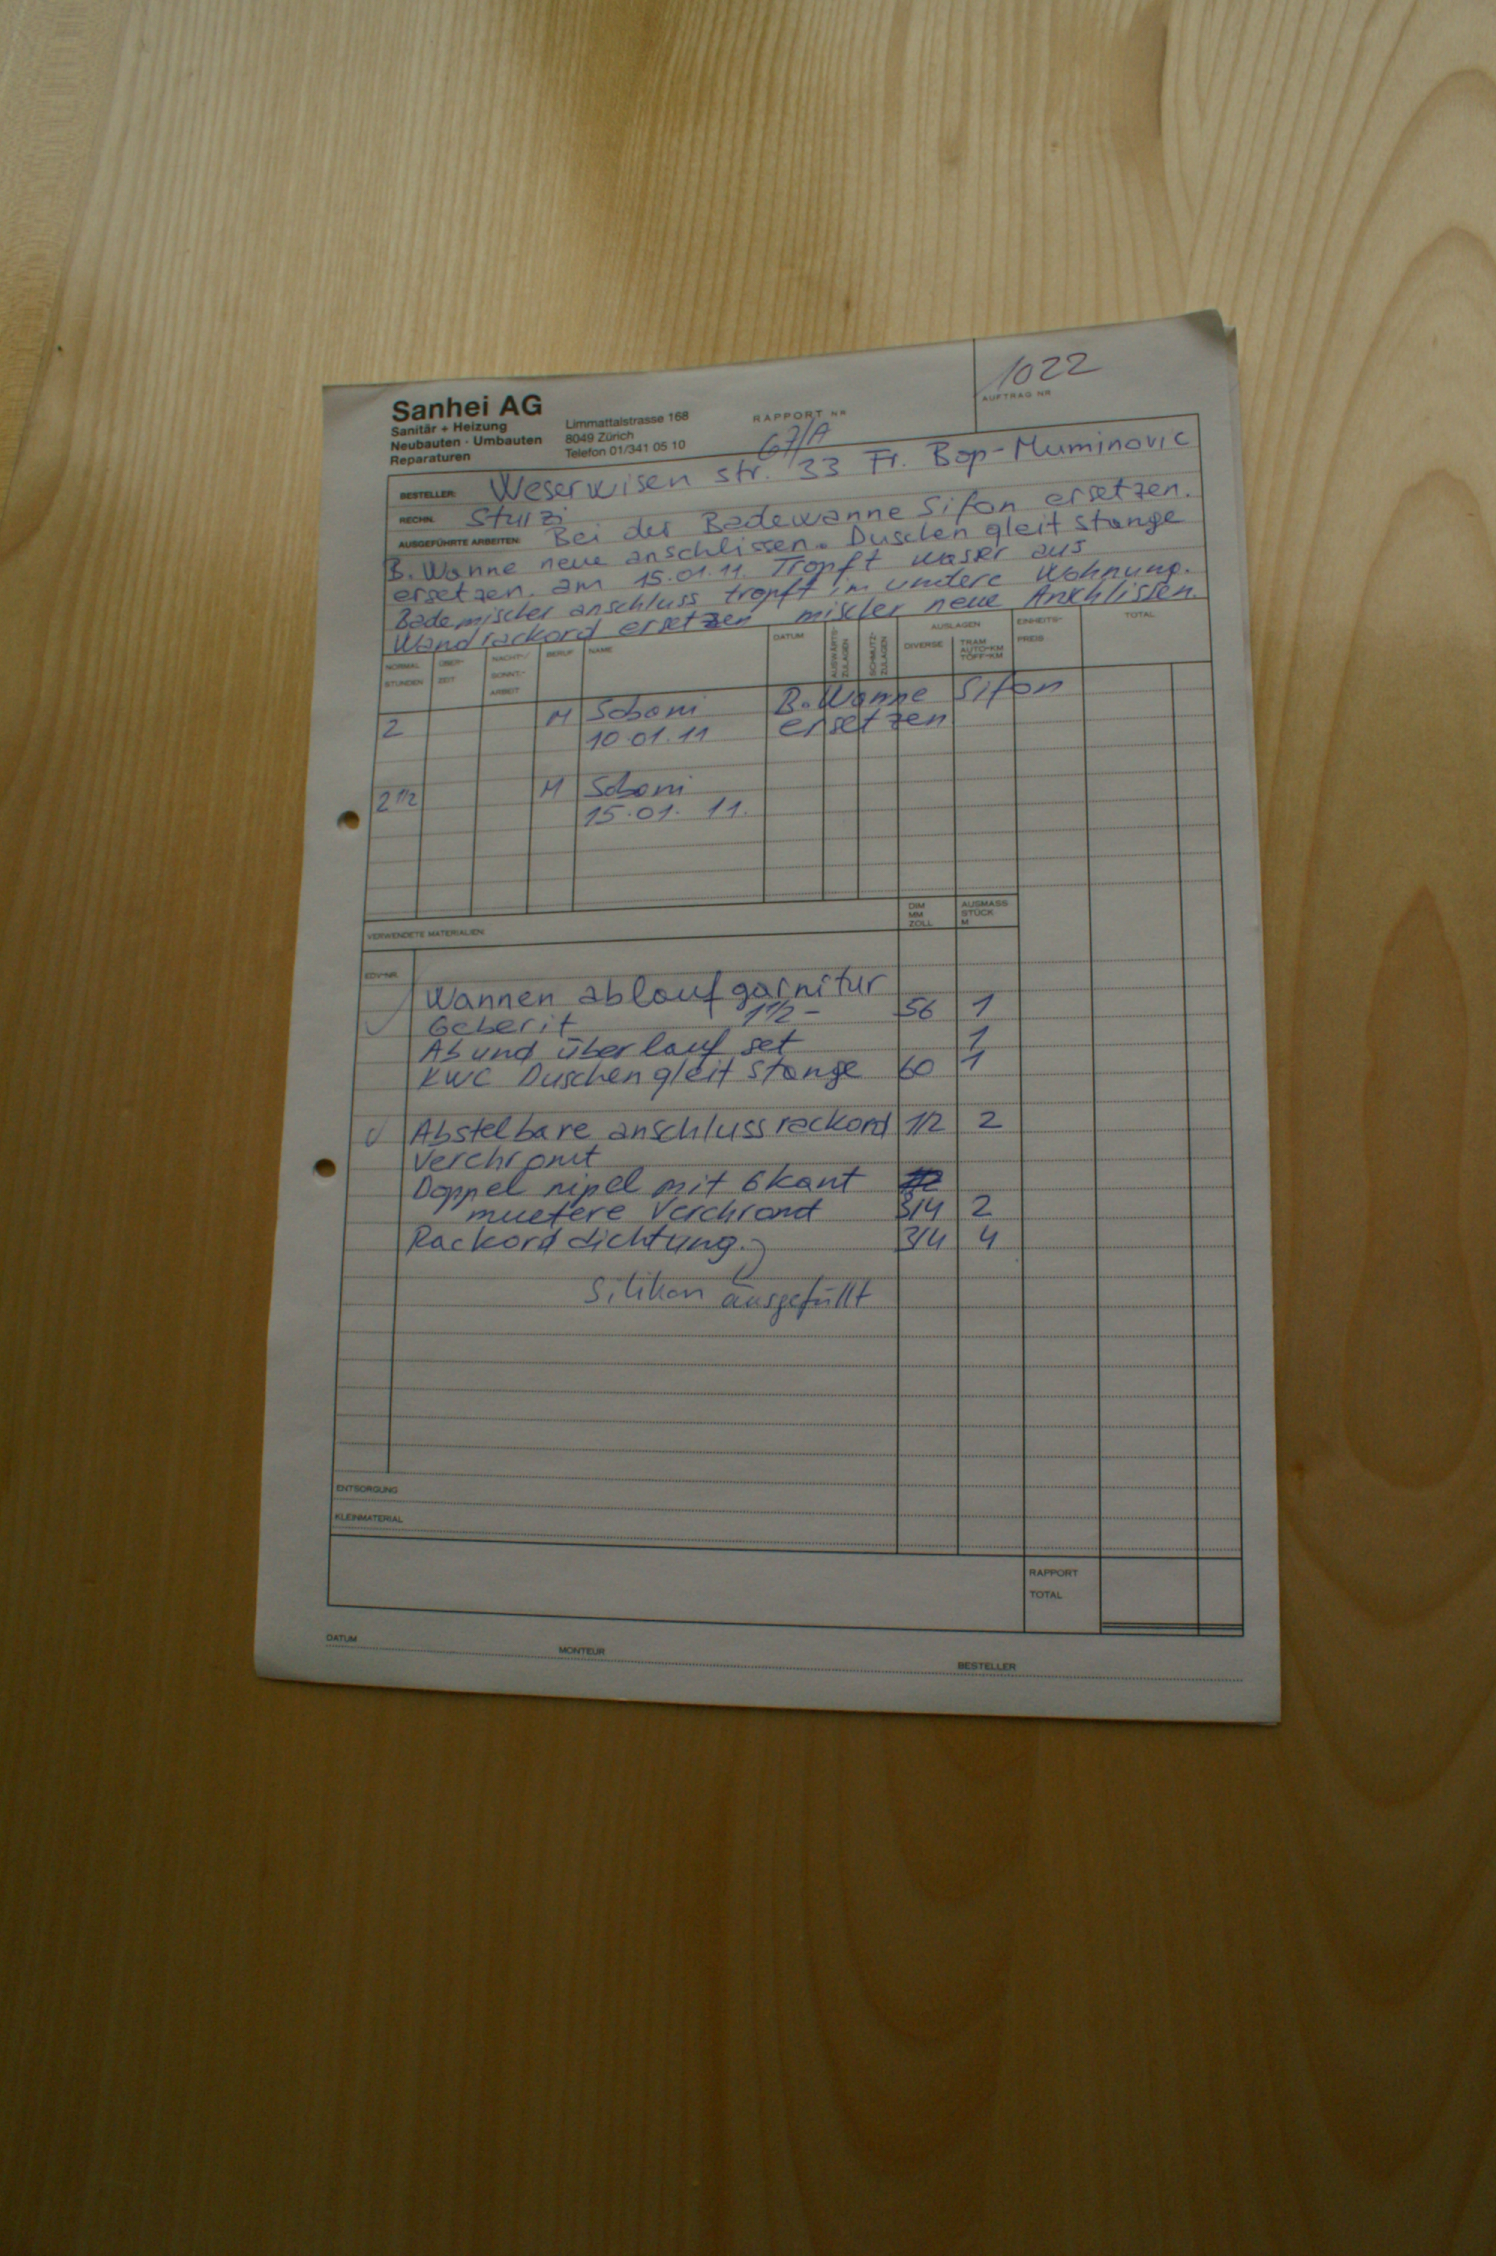 1022
AUFTRAG NR
Sanhei AG
Sanitär + Heizung
Neubauten · Umbauten
Reparaturen
Limmattalstrasse 168
8049 Zürich
Telefon 01/341 05 10
RAPPORT NR
67/A
BESTELLER: Weserwisen str. 33 Fr. Bop-Muminovic
RECHN. Sturzi
AUSGEFÜHRTE ARBEITEN: Bei der Badewanne Sifon ersetzen.
B. Wanne neue anschlissen. Duschen gleit stange
ersetzen. am 15.01.11. Tropft wasser aus
Bademischer anschluss tropft im undere Wohnung.
Wandrackord ersetzen mischer neue Anschlissen.
NORMAL STUNDEN ÜBER- ZEIT NACHT-/ SONNT.- ARBEIT BERUF NAME DATUM AUSWÄRTS- ZULAGEN SCHMUTZ- ZULAGEN AUSLAGEN DIVERSE TRAM AUTO-KM TÖFF-KM EINHEITS- PREIS TOTAL
2 M Sobami B. Wanne Sifon
10.01.11 ersetzen
2 1/2 M Sobami
15.01. 11.
VERWENDETE MATERIALIEN: DIM MM ZOLL AUSMASS STÜCK M
EDV-NR.
Wannen ablauf garnitur
Geberit 1 1/2 - 56 1
Ab und überlauf set 1
KWC Duschen gleit stange 60 1
Abstelbare anschluss rackord 1/2 2
Verchromt
Doppel nipel mit 6kant
muetere Verchromt 3/4 2
Rackord dichtung. 3/4 4
Silikon ausgefüllt
ENTSORGUNG
KLEINMATERIAL
RAPPORT
TOTAL
DATUM MONTEUR BESTELLER